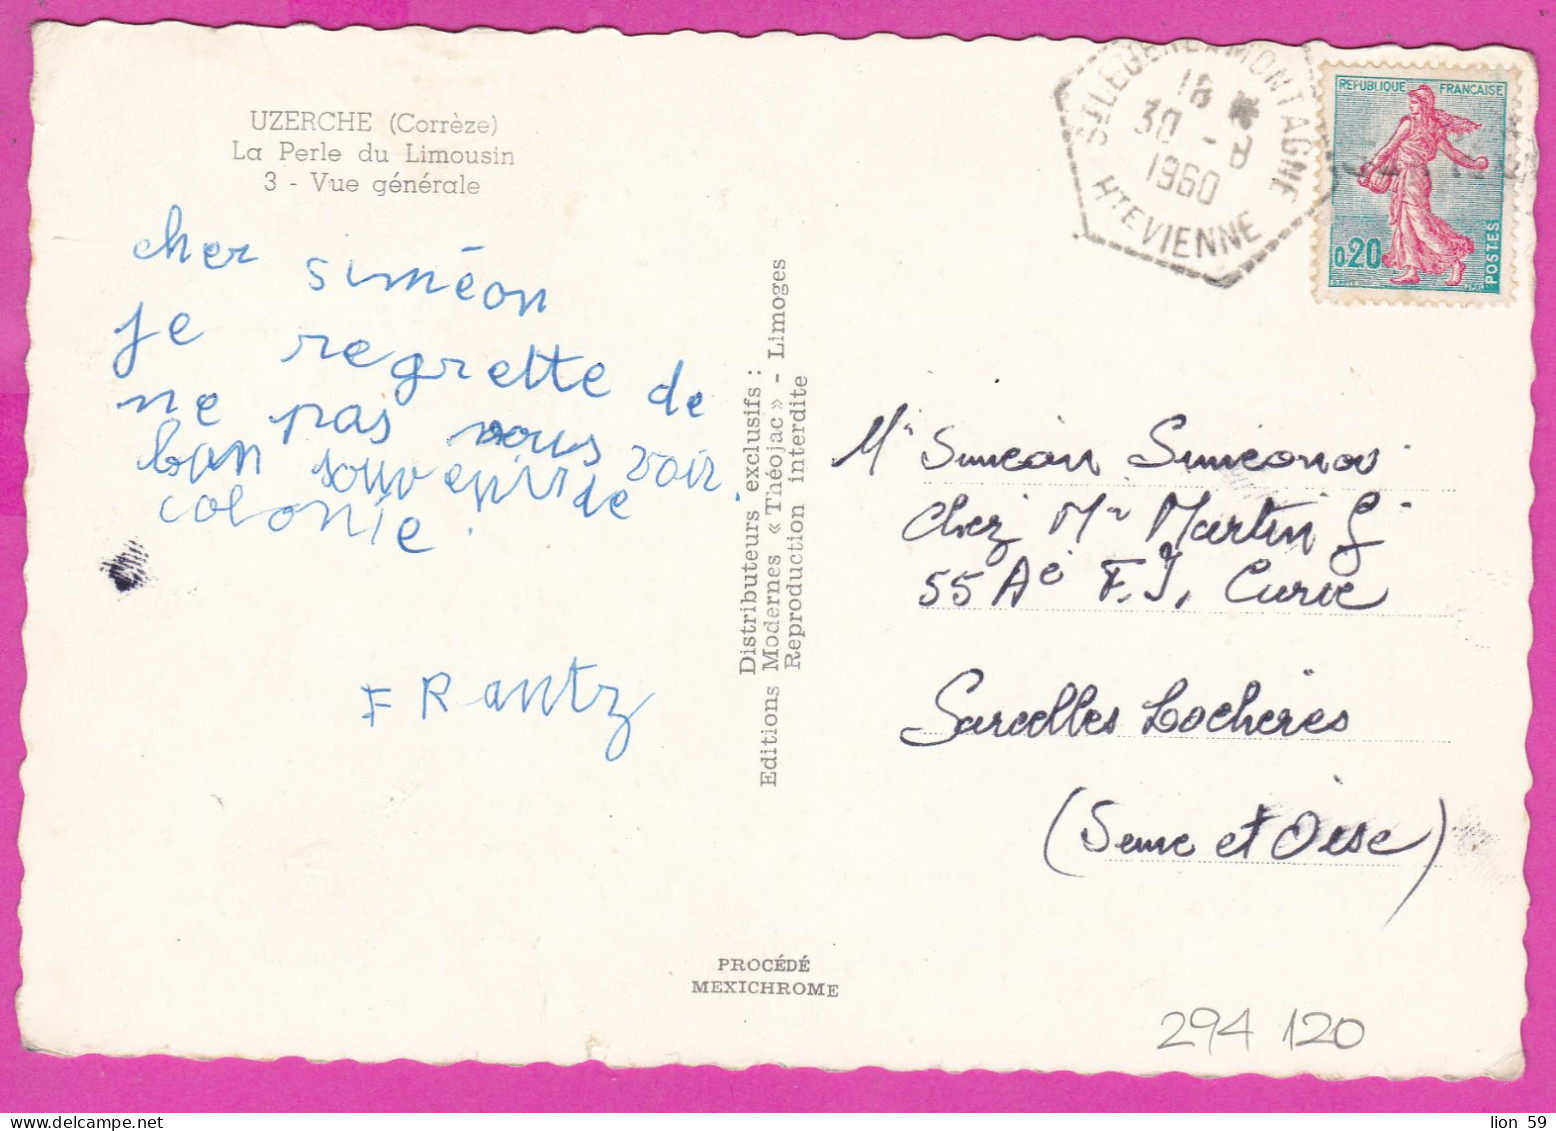 UZERCHE (Corrèze)
La Perle du Limousin
3 - Vue générale
cher siméon
je regrette de
ne pas vous voir.
bon souvenir de
colonie.
FRantz
Distributeurs exclusifs :
Editions Modernes « Théojac » - Limoges
Reproduction interdite
PROCÉDÉ
MEXICHROME
18
30 - 8
1960
HTE VIENNE
REPUBLIQUE FRANÇAISE
0,20
POSTES
Mr Siméon Siméonov
Chez Mr Martin G
55 Ae F. J. Curie
Sarcelles Lochères
(Seine et Oise)
294 120
lion 59